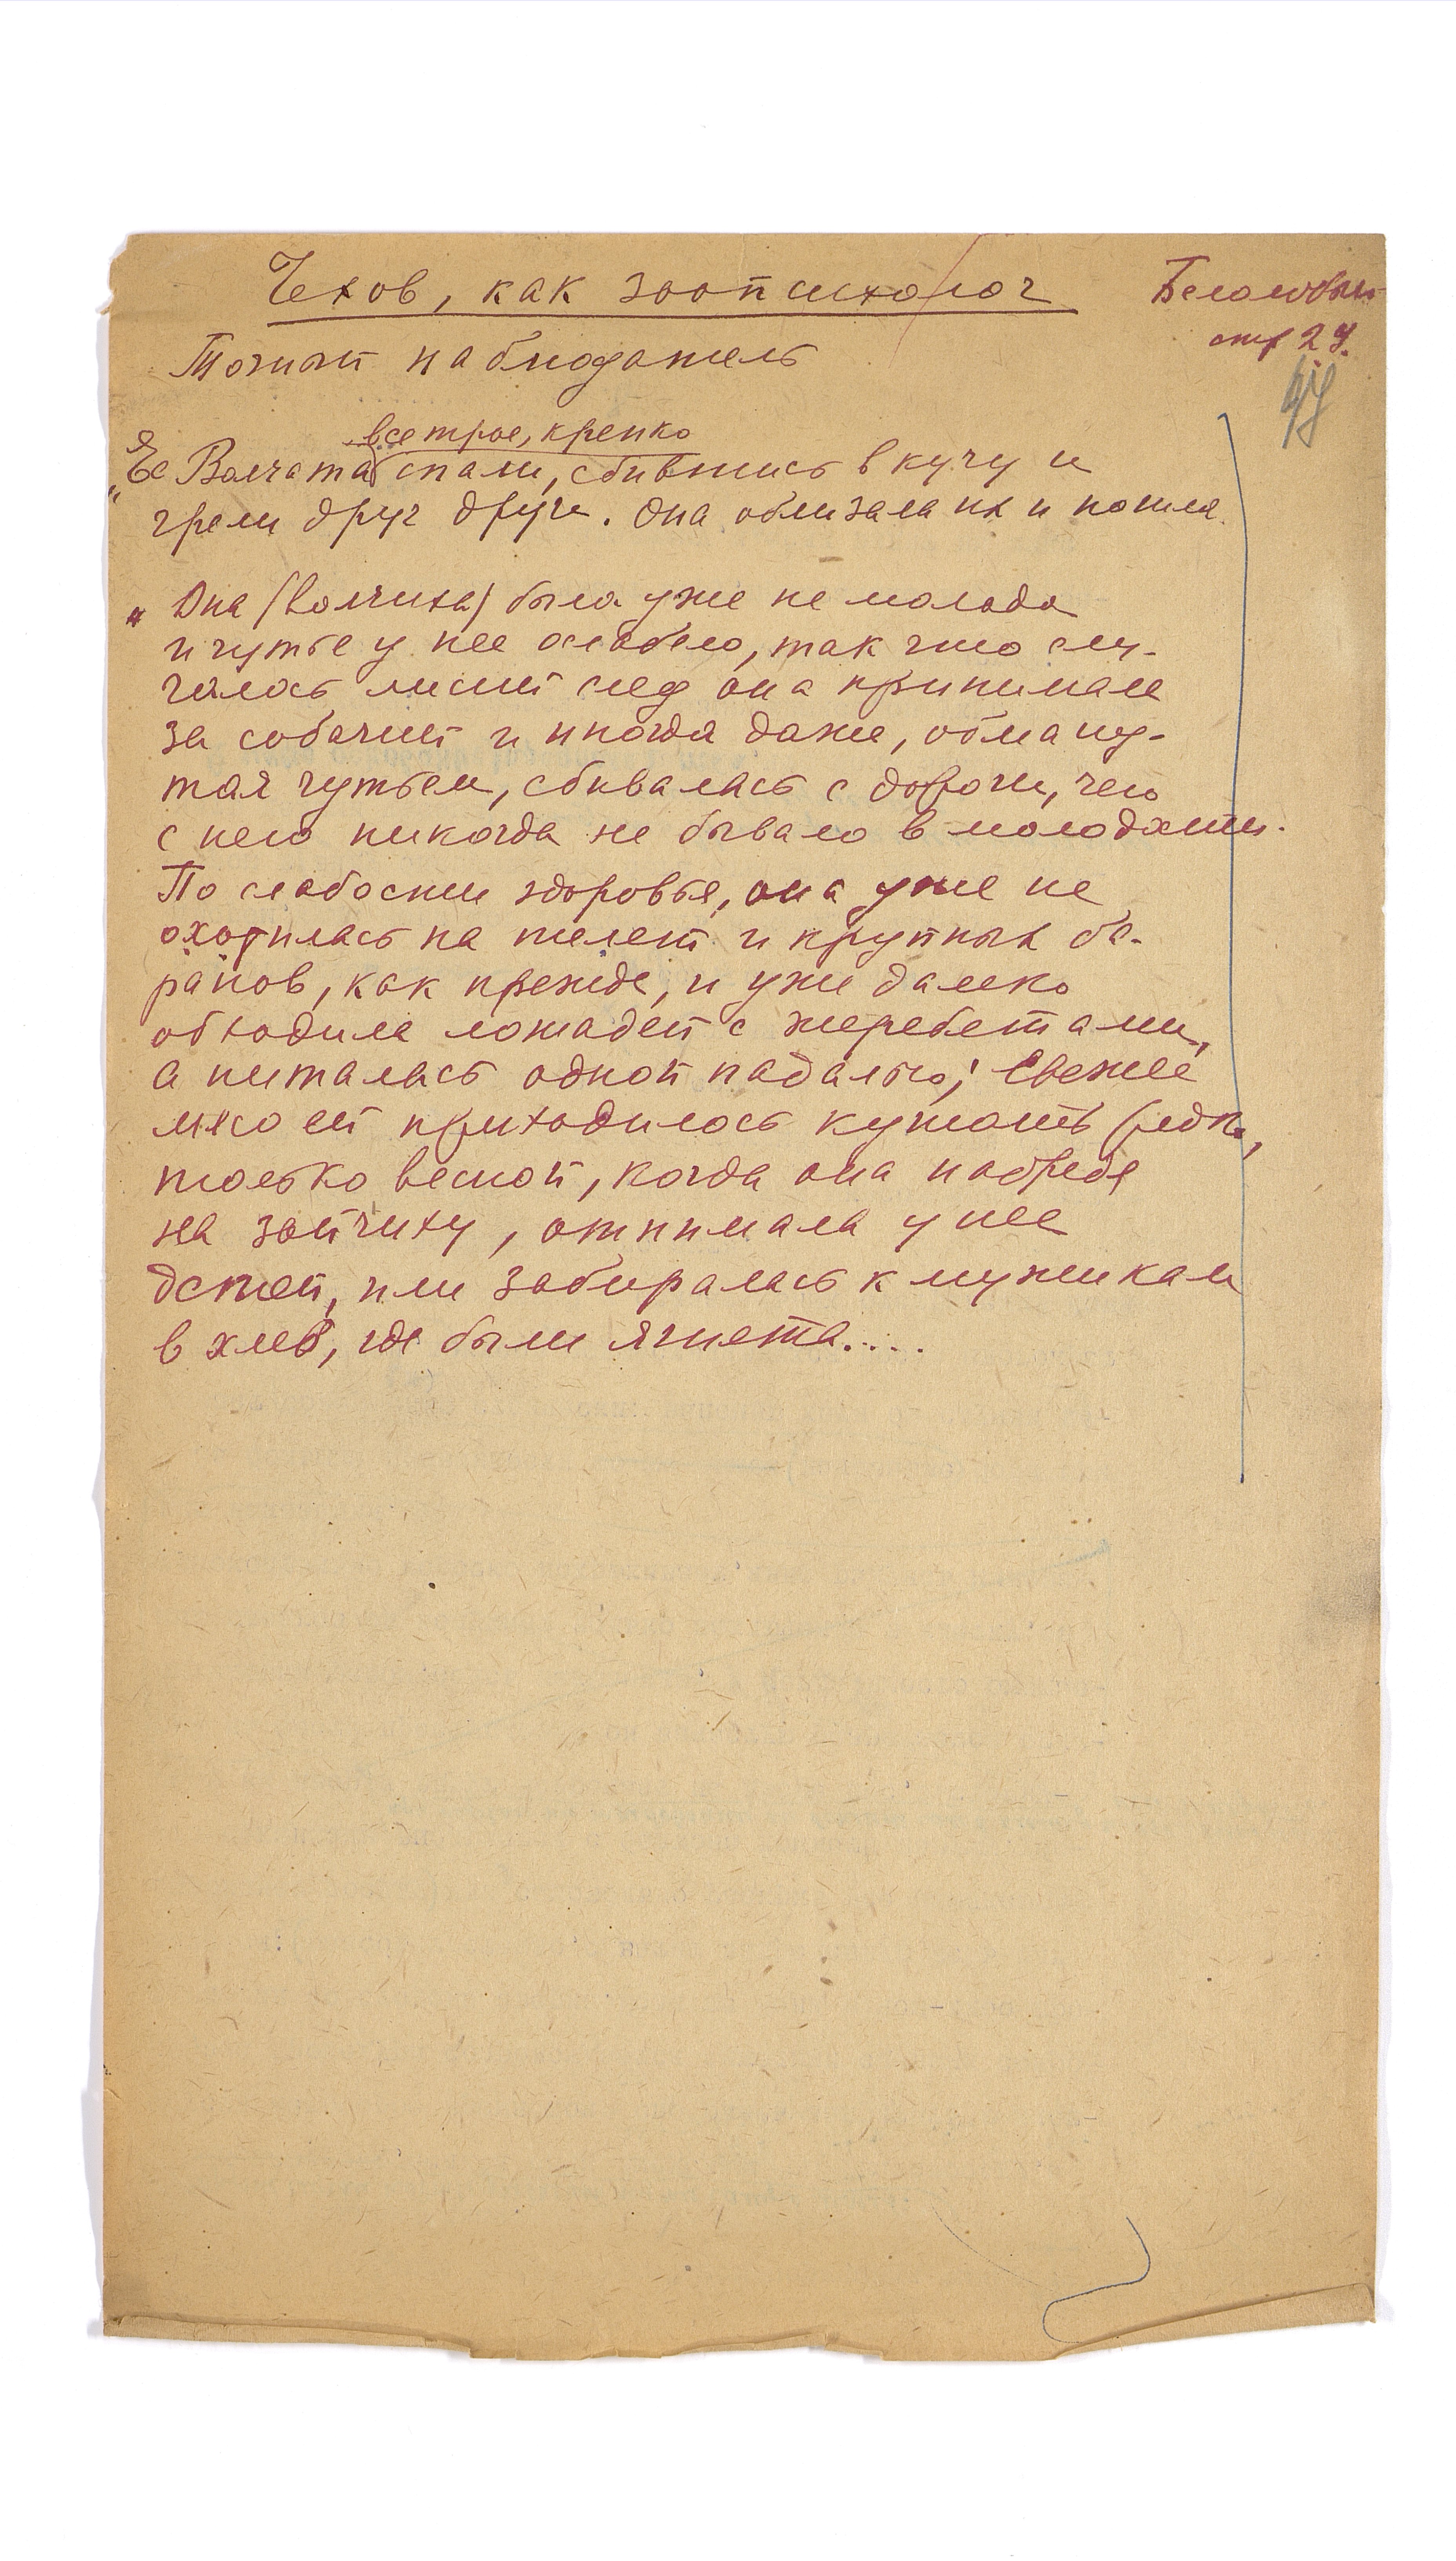 Чехов, как зоопсихолог
Белолобый
стр 29.
Точный наблюдатель
все трое, крепко
"Ее Волчата спали, сбившись в кучу и
грели друг друга. Она облизала их и пошла.
" Она (волчиха) была уже не молода
и чутье у нее ослабело, так что слу-
чалось лисий след она принимала
за собачий и иногда даже, обману-
тая чутьем, сбивалась с дороги, чего
с нею никогда не бывало в молодости.
По слабости здоровья, она уже не
охотилась на телят и крупных ба-
ранов, как прежде, и уже далеко
обходила лошадей с жеребятами,
а питалась одной падалью; свежее
мясо ей приходилось кушать редко,
только весной, когда она набредя
на зайчиху, отнимала у нее
детей, или забиралась к мужикам
в хлев, где были ягнята....